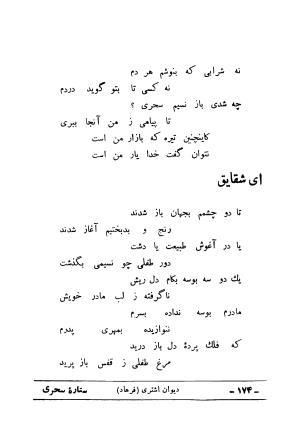 نه شرابی که بنوشم هر دم
نه کسی تا بتو گوید دردم
چه شدی باز نسیم سحری ؟
تا پیامی ز من آنجا ببری
کاینچنین تیره که بازار من است
نتوان گفت خدا یار من است
ای شقایق
تا دو چشمم بجهان باز شدند
رنج و بدبختیم آغاز شدند
یا در آغوش طبیعت یا دشت
دور طفلی چو نسیمی بگذشت
یك دو سه بوسه بکام دل ریش
ناگرفته ز لب مادر خویش
مادرم بوسه نداده بسرم
ننوازیده بمهری پدرم
که فلك پردهٔ دل باز درید
مرغ طفلی ز قفس باز پرید
ستارهٔ سحری دیوان اشتری (فرهاد) - ۱۷۴ -